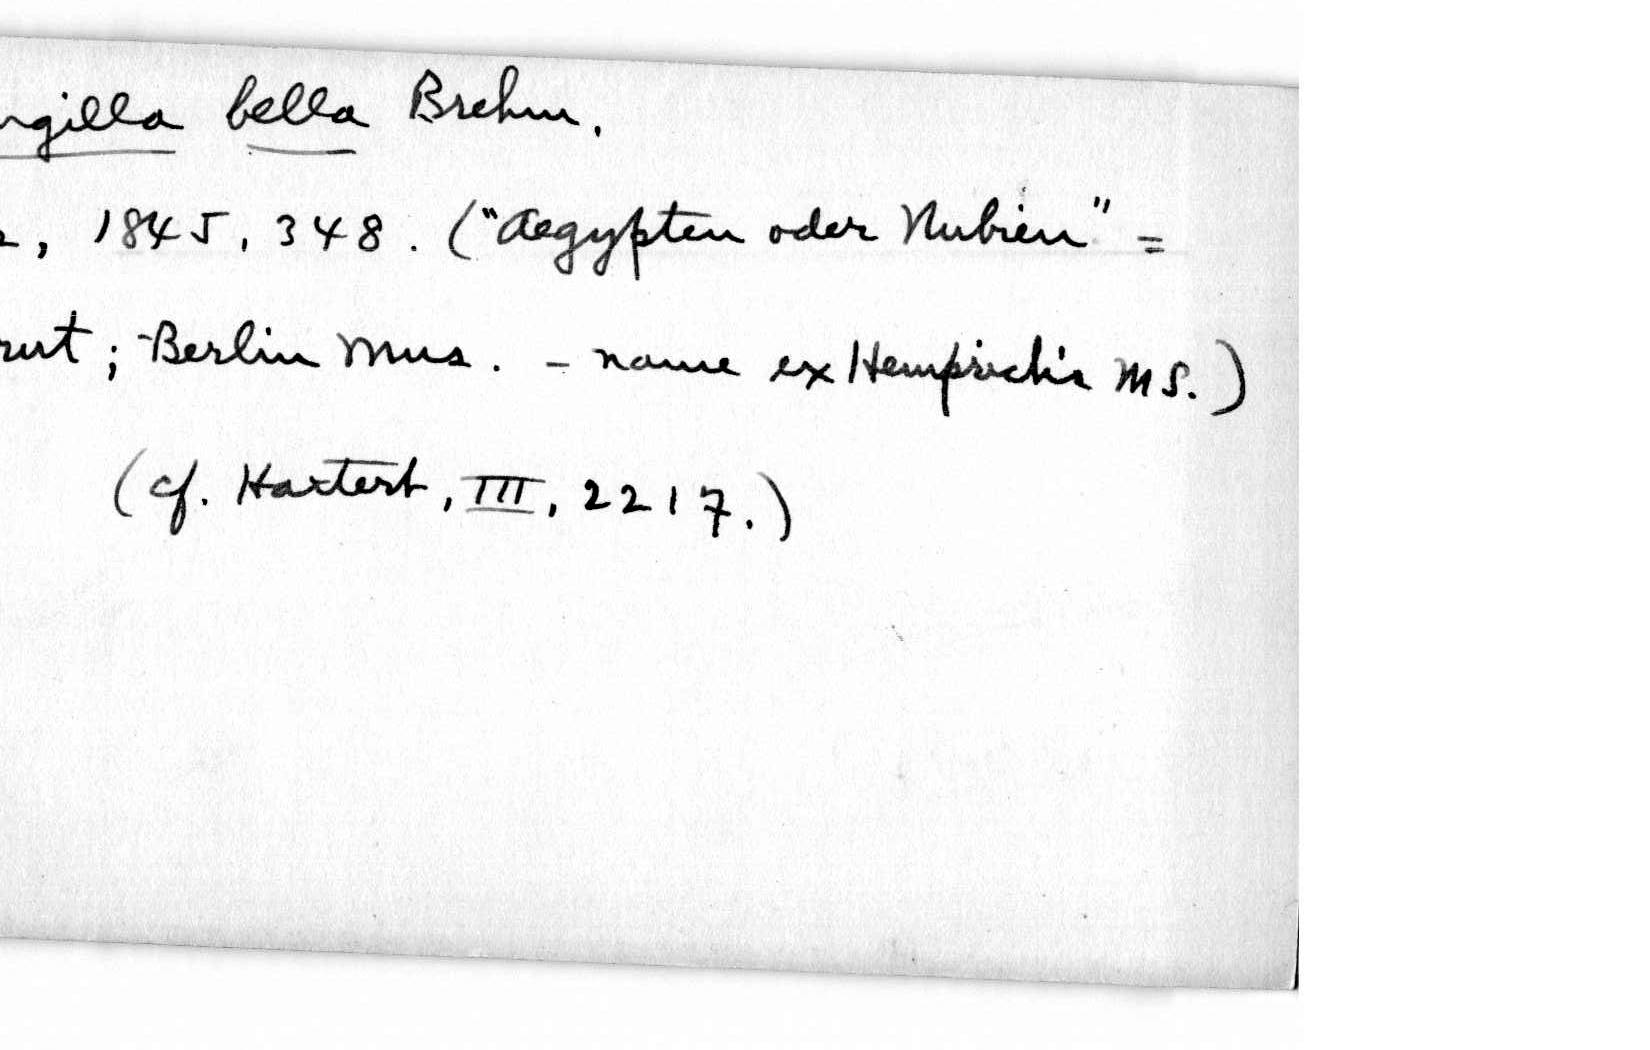 ngilla bella Brehm.
, 1845, 348. ("Aegypten oder Nubien" =
rut; Berlin Mus. - name ex Hemprich's MS.)
(cf. Hartert, III, 2217.)